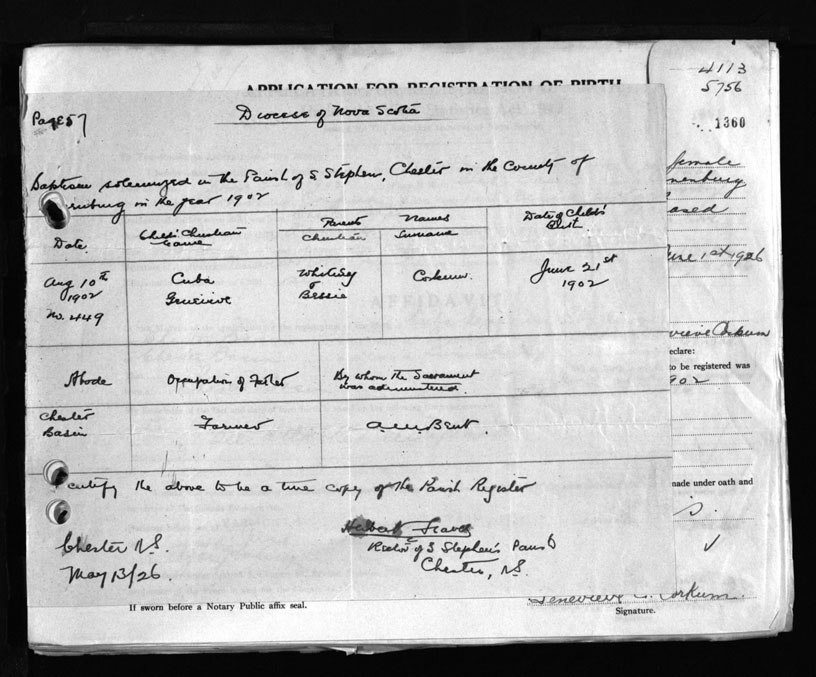 APPLICATION FOR REGISTRATION OF BIRTH
4113
5756
1360
Page 57
Diocese of Nova Scotia
Baptism solemnized in the Parish of S Stephen, Chester in the County of
nenburg in the year 1902
Date
Child's Christian Name
Parents Names
Christian
Surname
Date of Child's Birth
Aug 10th 1902
No. 449
Cuba
Whitney & Bessie
Corkum
June 21st 1902
Abode
Occupation of Father
By whom the Sacrament was administered
Chester Basin
Farmer
Bent.
certify the above to be a true copy of the Parish Register
Rector of S Stephen's Parish
Chester, N.S.
Chester N.S.
May 13/26.
female
nenburg
June 1st 1926
vieve Corkum
eclare:
to be registered was
902
made under oath and
AFFIDAVIT
If sworn before a Notary Public affix seal.
Genevieve C. Corkum
Signature.